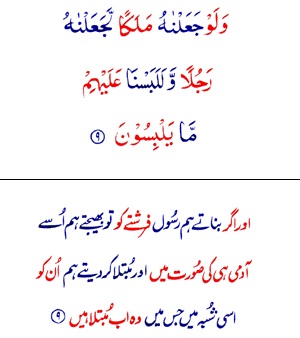 وَلَوْ جَعَلْنٰهُ مَلَكًا لَّجَعَلْنٰهُ
رَجُلًا وَّلَلَبَسْنَا عَلَيْهِمْ
مَّا يَلْبِسُوْنَ ۹
اور اگر بناتے ہم رسُول فرشتے کو تو بھیجتے ہم اُسے
آدمی ہی کی صُورت میں اور مُبتلا کر دیتے ہم اُن کو
اسی شُبہ میں جس میں وہ اب مُبتلا ہیں ۹